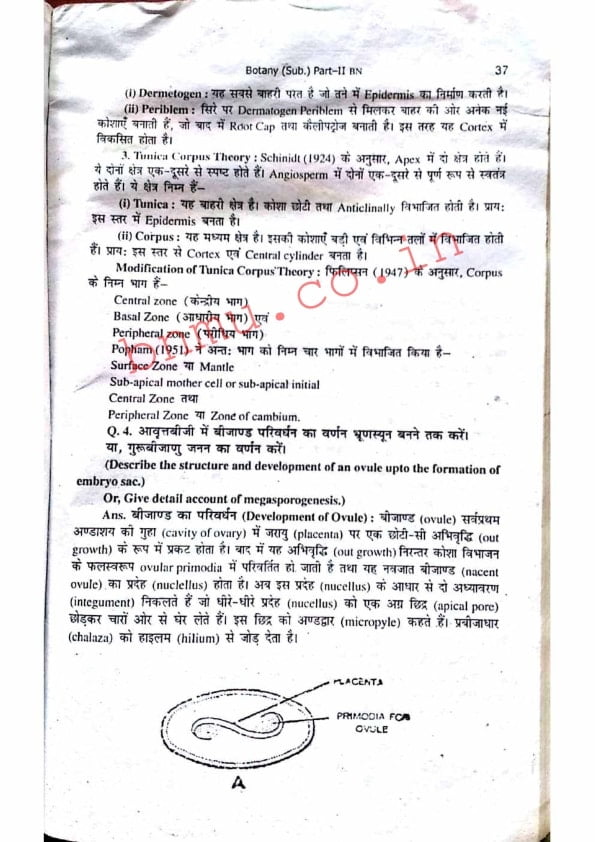 Botany (Sub.) Part–II BN 37
(i) Dermetogen : यह सबसे बाहरी परत है जो तने में Epidermis का निर्माण करती है।
(ii) Periblem : सिरे पर Dermatogen Periblem से मिलकर बाहर की ओर अनेक नई
कोशाएँ बनाती हैं, जो बाद में Root Cap तथा कैलीपट्रोज बनाती है। इस तरह यह Cortex में
विकसित होता है।
3. Tunica Corpus Theory : Schinidt (1924) के अनुसार, Apex में दो क्षेत्र होते हैं।
ये दोनों क्षेत्र एक-दूसरे से स्पष्ट होते हैं। Angiosperm में दोनों एक-दूसरे से पूर्ण रूप से स्वतंत्र
होते हैं। ये क्षेत्र निम्न हैं–
(i) Tunica : यह बाहरी क्षेत्र है। कोशा छोटी तथा Anticlinally विभाजित होती है। प्राय:
इस स्तर में Epidermis बनता है।
(ii) Corpus : यह मध्यम क्षेत्र है। इसकी कोशाएँ बड़ी एवं विभिन्न तलों में विभाजित होती
हैं। प्राय: इस स्तर से Cortex एवं Central cylinder बनता है।
Modification of Tunica Corpus Theory : फिलिप्सन (1947) के अनुसार, Corpus
के निम्न भाग हैं–
Central zone (केन्द्रीय भाग)
Basal Zone (आधारीय भाग) एवं
Peripheral zone (परीधिय भाग)
Popham (1951) ने अन्त: भाग को निम्न चार भागों में विभाजित किया है–
Surface Zone या Mantle
Sub-apical mother cell or sub-apical initial
Central Zone तथा
Peripheral Zone या Zone of cambium.
Q. 4. आवृत्तबीजी में बीजाण्ड परिवर्धन का वर्णन भ्रूणस्यून बनने तक करें।
या, गुरूबीजाणु जनन का वर्णन करें।
(Describe the structure and development of an ovule upto the formation of
embryo sac.)
Or, Give detail account of megasporogenesis.)
Ans. बीजाण्ड का परिवर्धन (Development of Ovule) : बीजाण्ड (ovule) सर्वप्रथम
अण्डाशय की गुहा (cavity of ovary) में जरायु (placenta) पर एक छोटी-सी अभिवृद्धि (out
growth) के रूप में प्रकट होता है। बाद में यह अभिवृद्धि (out growth) निरन्तर कोशा विभाजन
के फलस्वरूप ovular primodia में परिवर्तित हो जाती है तथा यह नवजात बीजाण्ड (nacent
ovule) का प्रदेह (nuclellus) होता है। अब इस प्रदेह (nucellus) के आधार से दो अध्यावरण
(integument) निकलते हैं जो धीरे-धीरे प्रदेह (nucellus) को एक अग्र छिद्र (apical pore)
छोड़कर चारों ओर से घेर लेते हैं। इस छिद्र को अण्डद्वार (micropyle) कहते हैं। प्रबीजाधार
(chalaza) को हाइलम (hilium) से जोड़ देता है।
PLACENTA
PRIMODIA FOR
OVULE
A
bnmu.co.in